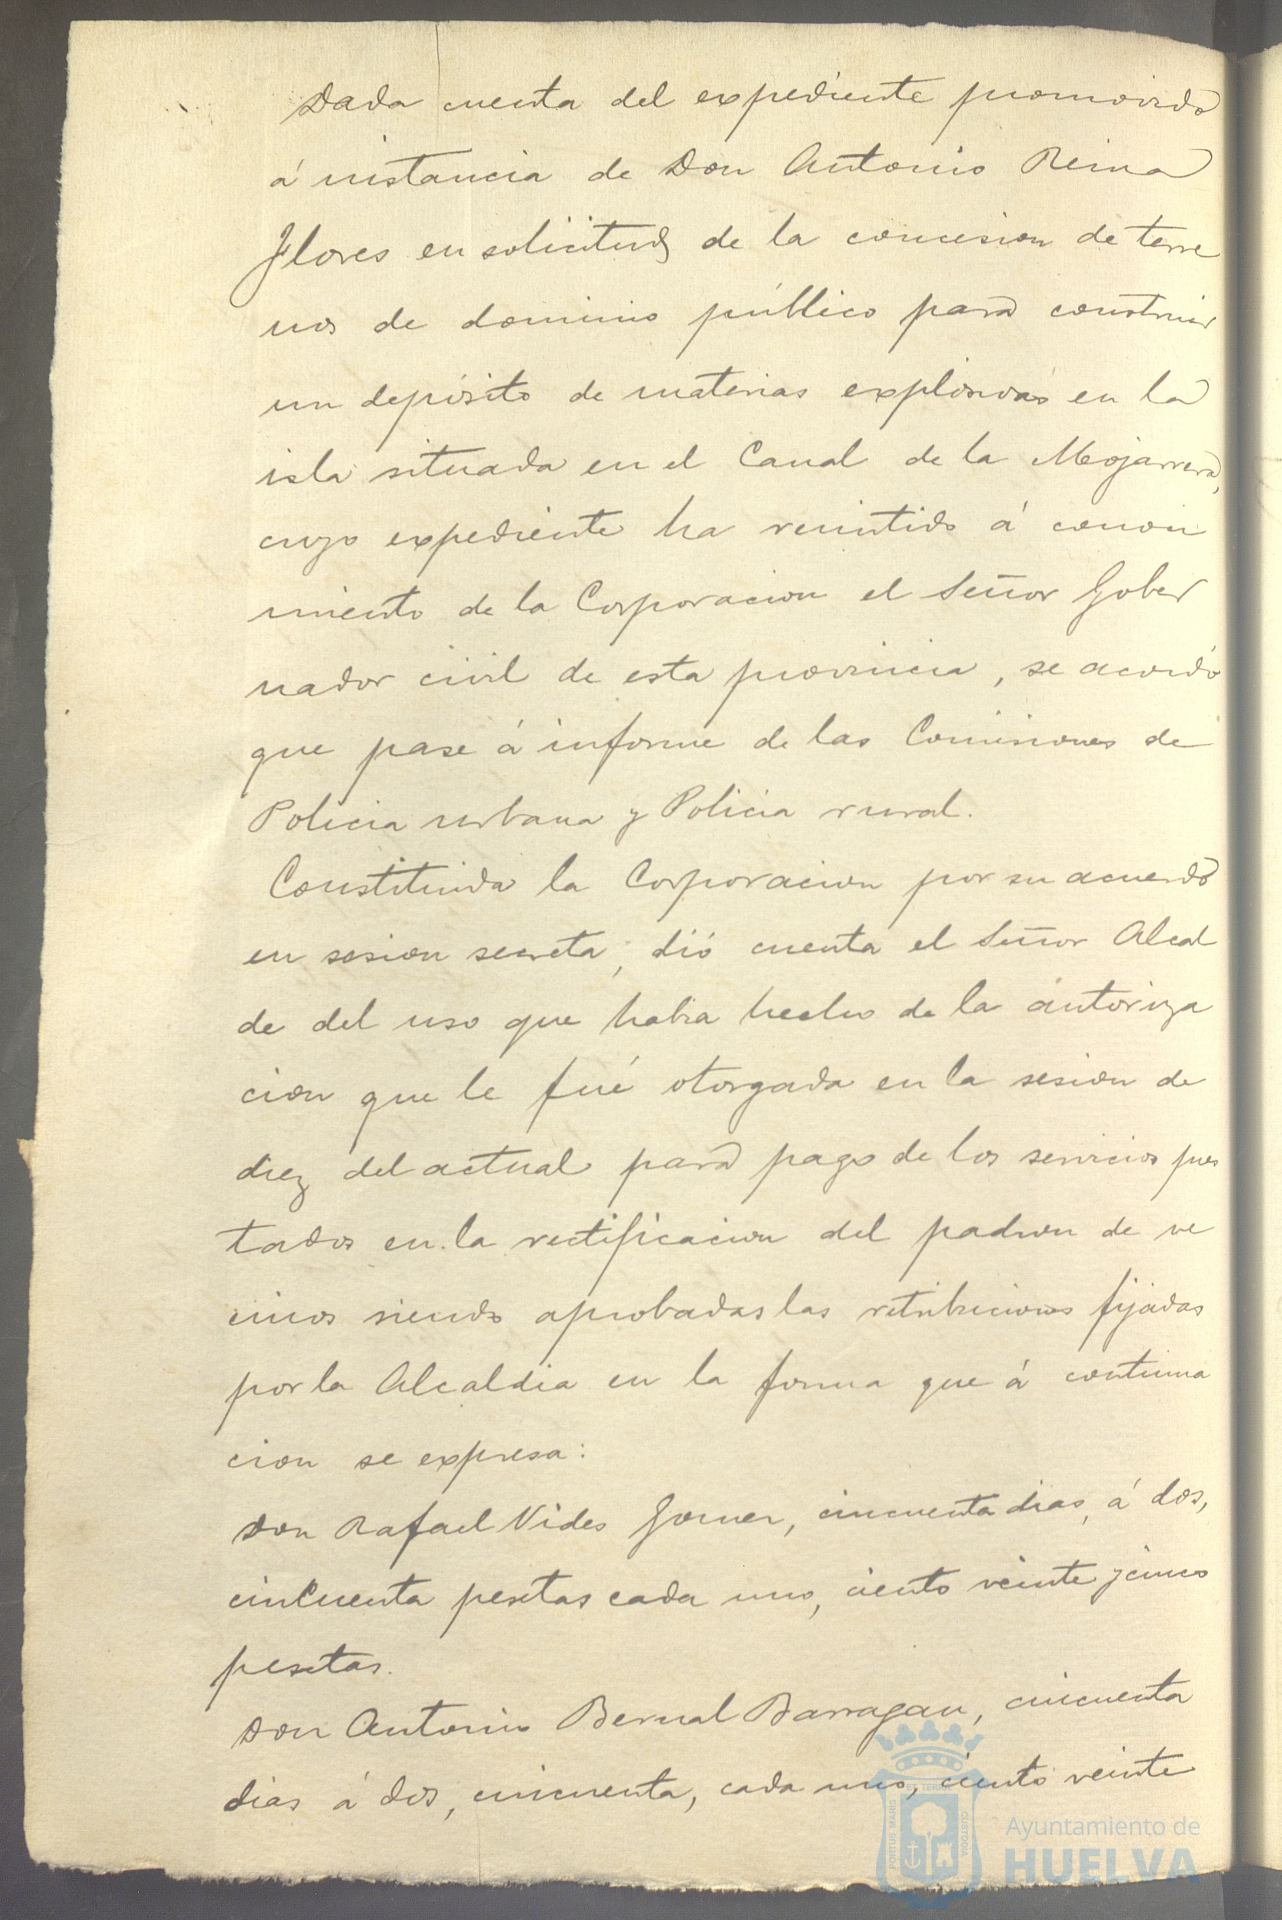 Dada cuenta del expediente promovido
á instancia de Don Antonio Reina
Flores en solicitud de la concesion de terre
nos de dominio público para construir
un depósito de materias explosivas en la
isla situada en el Canal de la Mojarrera,
cuyo expediente ha remitido á conoci
miento de la Corporacion el Señor Gober
nador civil de esta provincia, se acordó
que pase á informe de las Comisiones de
Policia urbana y Policia rural.
Constituida la Corporacion por su acuerdo
en sesion secreta, dió cuenta el Señor Alcal
de del uso que habia hecho de la autoriza
cion que le fué otorgada en la sesion de
diez del actual para pago de los servicios pres
tados en la rectificacion del padron de ve
cinos siendo aprobadas las retribuciones fijadas
por la Alcaldia en la forma que á continua
cion se expresa:
Don Rafael Vides, cincuenta dias, á dos,
cincuenta pesetas cada uno, ciento veinte y cinco
pesetas.
Don Antonio Bernal Barragan, cincuenta
dias á dos, cincuenta, cada uno, ciento veinte
PORTUS MARIS ET TERRAE CUSTODIA
Ayuntamiento de
HUELVA